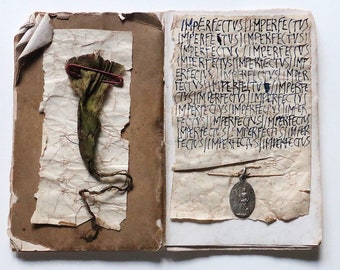 IMPERFECTUS||IMPERFECTUS
IMPERFECTUS IMPERFECTUS
IMPERFECTUS IMPERFECTUS
IMPERFECTUS IMPERFECTUS IMP
ERFECTUS IMPERFECTUS IMPER
FECTUS IMPERFECTUS IMPERF
ECTUS IMPERFECTUS IMPERFE
CTUS IMPERFECTUS IMPERFECT
US IMPERFECTUS IMPERFECTUS
IMPERFECTUS IMPERFECTUS IMPER
FECTUS IMPERFECTUS IMPERFECTUS